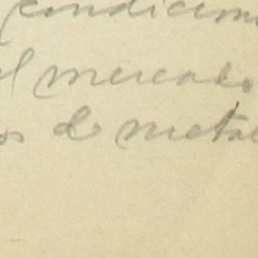 condicion
el mercado
os de metal